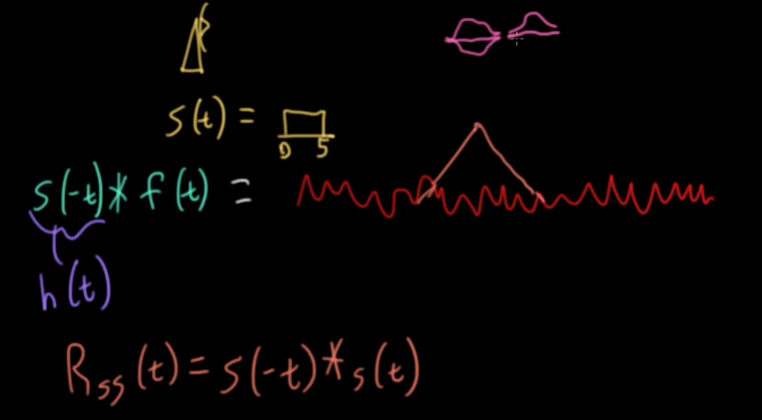 s(t) =
0 5
s(-t) * f(t) =
h(t)
Rss(t) = s(-t) * s(t)